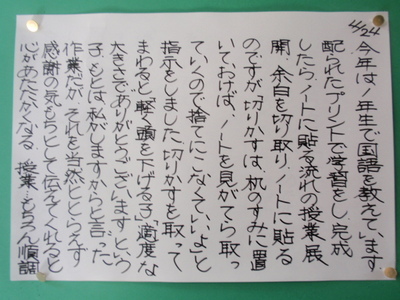 4/24
今年は1年生で国語を教えています
配られたプリントで学習をし、完成
したらノートに貼る流れの授業展
開。余白を切り取り、ノートに貼る
のですが、切りかすは、机のすみに置
いておけば、ノートを見がてら取っ
ていくので捨てにこなくていいよと
指示をしました。切りかすを取って
まわると、軽く頭を下げる子、適度な
大きさでありがとうございますという
子。もとは、私がしますからと言った
作業だが、それを当然ととらえず
感謝の気もちとして伝えてくれると
心があたたかくなる。授業もちろん順調